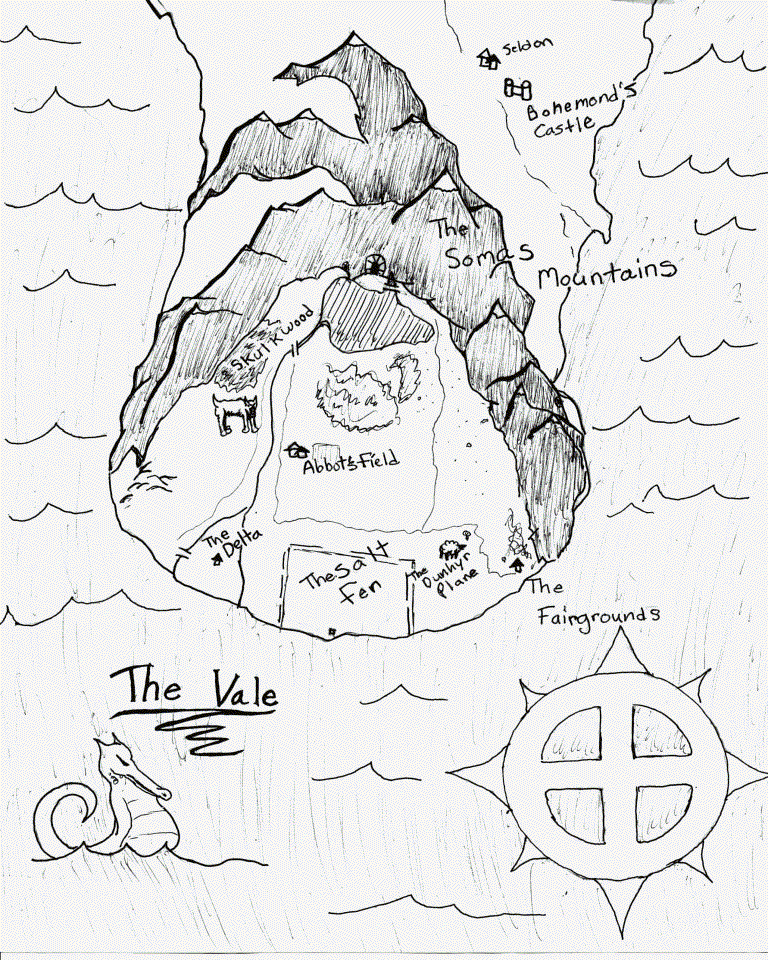 Seldon
Bohemond's
Castle
The
Somas
Mountains
Skulkwood
Abbot's Field
The
Delta
The Salt
Fen
The
Dunhyr
Plane
The
Fairgrounds
The Vale